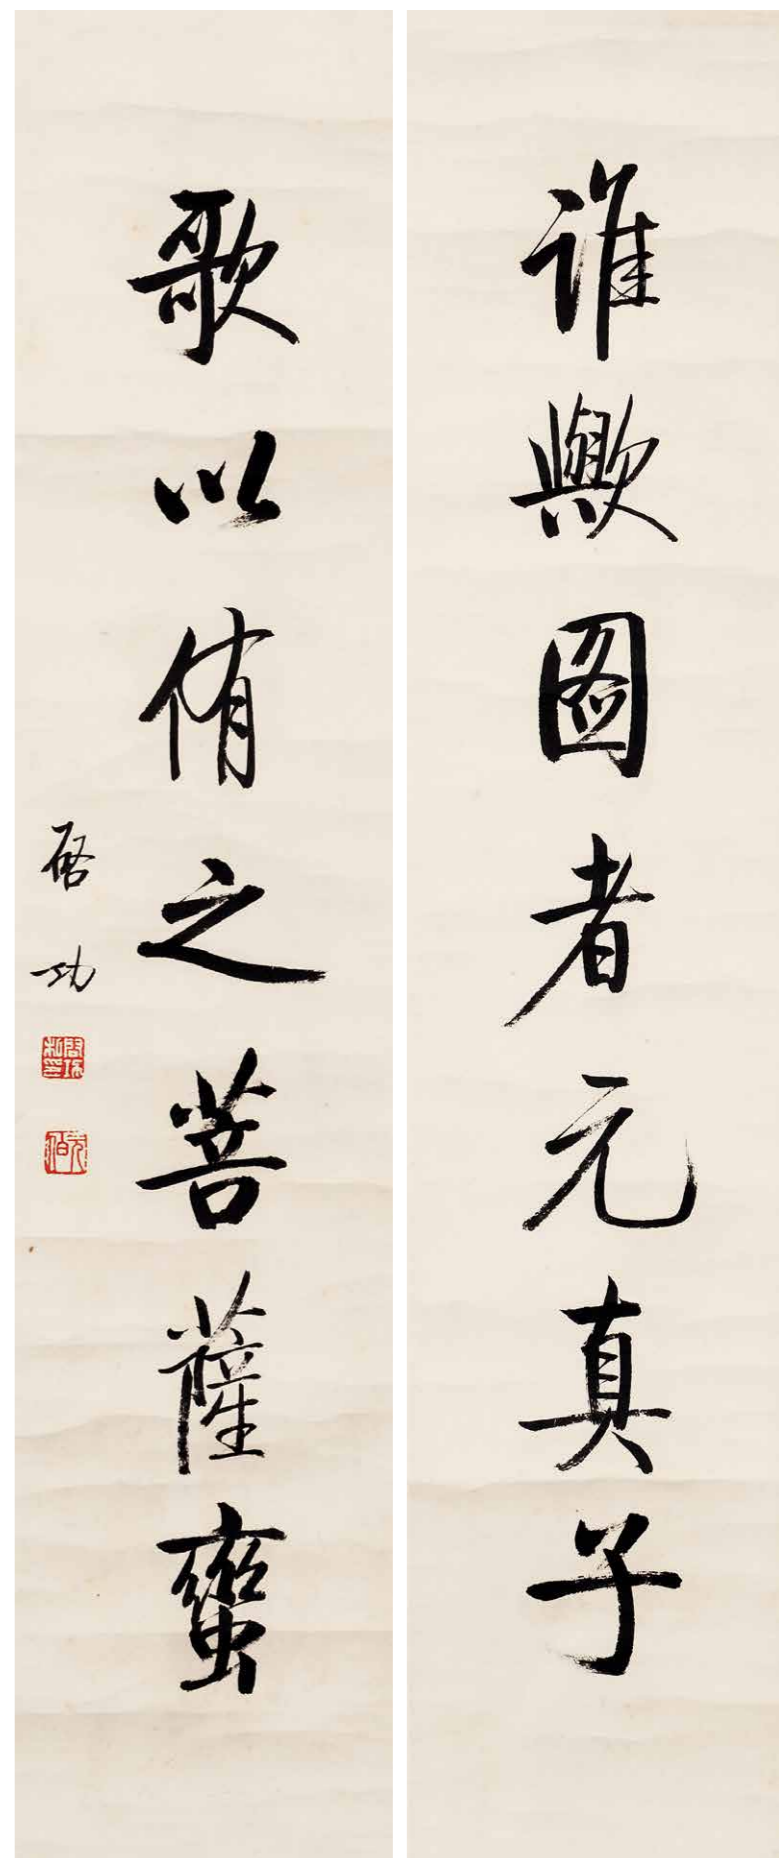 誰歟圖者元真子
歌以侑之菩薩蠻
啓功
元伯